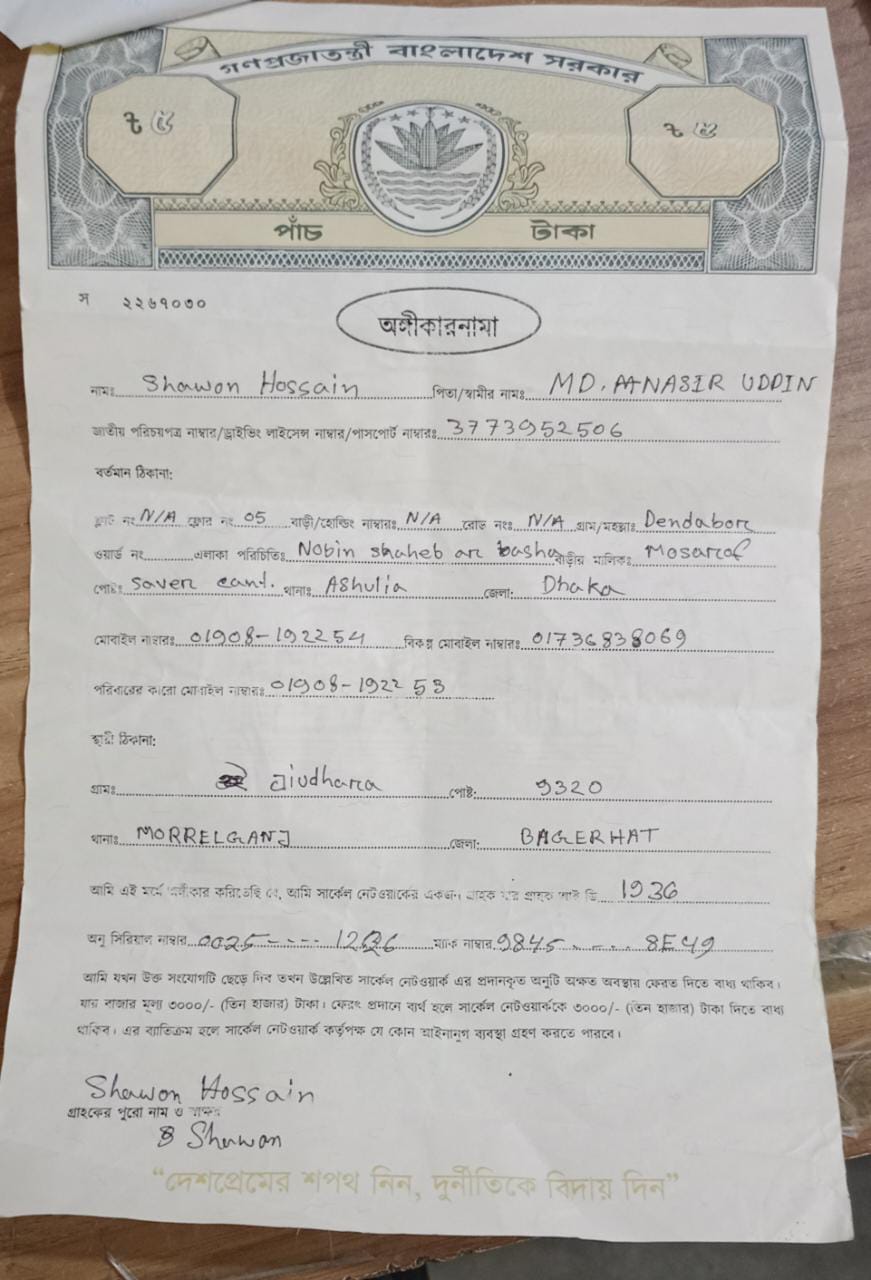 গণপ্রজাতন্ত্রী বাংলাদেশ সরকার
৳ ৫ ৳ ৫
পাঁচ টাকা
স ২২৬৭০৩০
অঙ্গীকারনামা
নামঃ Shawon Hossain পিতা/স্বামীর নামঃ MD. NASIR UDDIN
জাতীয় পরিচয়পত্র নাম্বার/ড্রাইভিং লাইসেন্স নাম্বার/পাসপোর্ট নাম্বারঃ 3773952506
বর্তমান ঠিকানা:
ফ্লাট নং N/A ফ্লোর নং 05 বাড়ী/হোল্ডিং নাম্বারঃ N/A রোড নংঃ N/A গ্রাম/মহল্লাঃ Dendabor
ওয়ার্ড নং এলাকা পরিচিতিঃ Nobin shaheb ar basha বাড়ীর মালিকঃ Mosarof
পোষ্টঃ Saver cant. থানাঃ AShulia জেলা: Dhaka
মোবাইল নাম্বারঃ 01908-192254 বিকল্প মোবাইল নাম্বারঃ 01736838069
পরিবারের কারো মোবাইল নাম্বারঃ 01908-192253
স্থায়ী ঠিকানা:
গ্রামঃ Jiudhara পোষ্ট: 9320
থানাঃ MORRELGANJ জেলা: BAGERHAT
আমি এই মর্মে অঙ্গীকার করিতেছি যে, আমি সার্কেল নেটওয়ার্কের একজন গ্রাহক যার গ্রাহক আই ডি 1936
অনু সিরিয়াল নাম্বার 0025---- ম্যাক নাম্বার 9845---- 8E49
আমি যখন উক্ত সংযোগটি ছেড়ে দিব তখন উল্লেখিত সার্কেল নেটওয়ার্ক এর প্রদানকৃত অনুটি অক্ষত অবস্থায় ফেরত দিতে বাধ্য থাকিব।
যার বাজার মূল্য ৩০০০/- (তিন হাজার) টাকা। ফেরৎ প্রদানে ব্যর্থ হলে সার্কেল নেটওয়ার্ককে ৩০০০/- (তিন হাজার) টাকা দিতে বাধ্য
থাকিব। এর ব্যতিক্রম হলে সার্কেল নেটওয়ার্ক কর্তৃপক্ষ যে কোন আইনানুগ ব্যবস্থা গ্রহণ করতে পারবে।
Shawon Hossain
গ্রাহকের পুরো নাম ও স্বাক্ষর
Shawon
“দেশপ্রেমের শপথ নিন, দুর্নীতিকে বিদায় দিন”